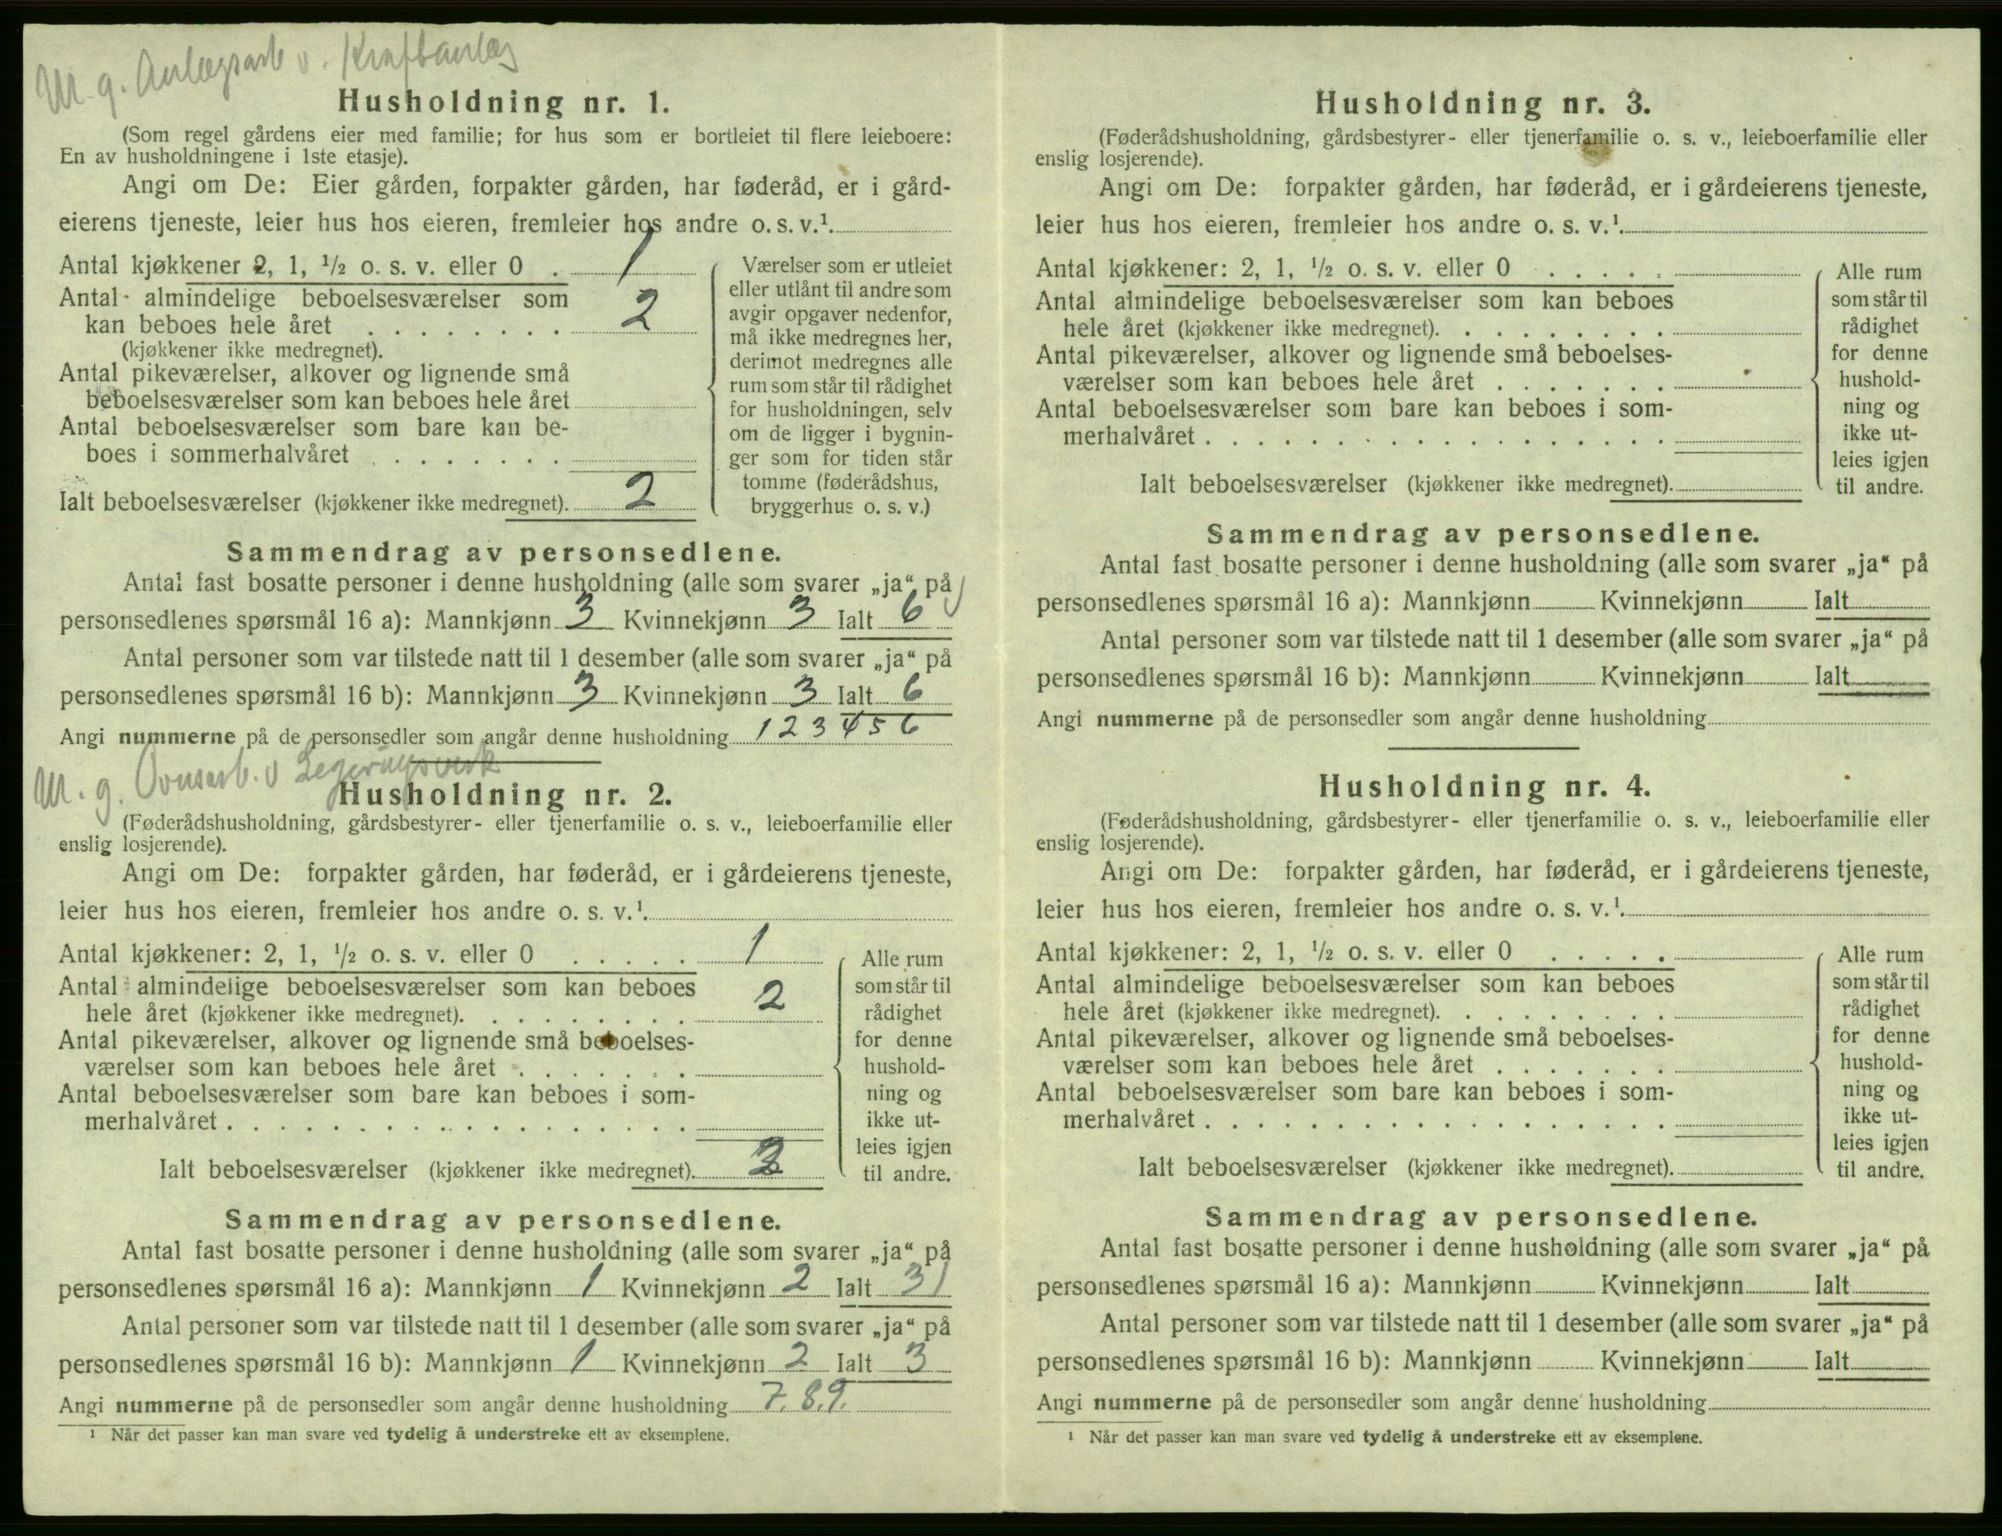 M. g. Anlægsarb v. Kraftanlæg
Husholdning nr. 1.
(Som regel gårdens eier med familie; for hus som er bortleiet til flere leieboere:
En av husholdningene i 1ste etasje).
Angi om De: Eier gården, forpakter gården, har føderåd, er i gård-
eierens tjeneste, leier hus hos eieren, fremleier hos andre o. s. v.¹
Antal kjøkkener 2, 1, ½ o. s. v. eller 0 . 1
Antal almindelige beboelsesværelser som
kan beboes hele året . . . . . . . . 2
(kjøkkener ikke medregnet).
Antal pikeværelser, alkover og lignende små
beboelsesværelser som kan beboes hele året
Antal beboelsesværelser som bare kan be-
boes i sommerhalvåret . . . . . . .
Ialt beboelsesværelser (kjøkkener ikke medregnet). 2
Værelser som er utleiet
eller utlånt til andre som
avgir opgaver nedenfor,
må ikke medregnes her,
derimot medregnes alle
rum som står til rådighet
for husholdningen, selv
om de ligger i bygnin-
ger som for tiden står
tomme (føderådshus,
bryggerhus o. s. v.)
Sammendrag av personsedlene.
Antal fast bosatte personer i denne husholdning (alle som svarer „ja“ på
personsedlenes spørsmål 16 a): Mannkjønn 3 Kvinnekjønn 3 Ialt 6
Antal personer som var tilstede natt til 1 desember (alle som svarer „ja“ på
personsedlenes spørsmål 16 b): Mannkjønn 3 Kvinnekjønn 3 Ialt 6
Angi nummerne på de personsedler som angår denne husholdning 1 2 3 4 5 6
M. g. Ovnsarb. v Legeringsverk
Husholdning nr. 2.
(Føderådshusholdning, gårdsbestyrer- eller tjenerfamilie o. s. v., leieboerfamilie eller
enslig losjerende).
Angi om De: forpakter gården, har føderåd, er i gårdeierens tjeneste,
leier hus hos eieren, fremleier hos andre o. s. v.¹
Antal kjøkkener: 2, 1, ½ o. s. v. eller 0 . . . . . 1
Antal almindelige beboelsesværelser som kan beboes
hele året (kjøkkener ikke medregnet). . . . . . . . . 2
Antal pikeværelser, alkover og lignende små beboelses-
værelser som kan beboes hele året . . . . . . .
Antal beboelsesværelser som bare kan beboes i som-
merhalvåret . . . . . . . . . . . . . . . . . .
Ialt beboelsesværelser (kjøkkener ikke medregnet).
Alle rum
som står til
rådighet
for denne
hushold-
ning og
ikke ut-
leies igjen
til andre.
Sammendrag av personsedlene.
Antal fast bosatte personer i denne husholdning (alle som svarer „ja“ på
personsedlenes spørsmål 16 a): Mannkjønn 1 Kvinnekjønn 2 Ialt 3
Antal personer som var tilstede natt til 1 desember (alle som svarer „ja“ på
personsedlenes spørsmål 16 b): Mannkjønn 1 Kvinnekjønn 2 Ialt 3
Angi nummerne på de personsedler som angår denne husholdning 7. 8. 9.
¹ Når det passer kan man svare ved tydelig å understreke ett av eksemplene.
Husholdning nr. 3.
(Føderådshusholdning, gårdsbestyrer- eller tjenerfamilie o. s. v., leieboerfamilie eller
enslig losjerende).
Angi om De: forpakter gården, har føderåd, er i gårdeierens tjeneste,
leier hus hos eieren, fremleier hos andre o. s. v.¹
Antal kjøkkener: 2, 1, ½ o. s. v. eller 0 . . . . .
Antal almindelige beboelsesværelser som kan beboes
hele året (kjøkkener ikke medregnet). . . . . . . . .
Antal pikeværelser, alkover og lignende små beboelses-
værelser som kan beboes hele året . . . . . . .
Antal beboelsesværelser som bare kan beboes i som-
merhalvåret . . . . . . . . . . . . . . . . . .
Ialt beboelsesværelser (kjøkkener ikke medregnet).
Alle rum
som står til
rådighet
for denne
hushold-
ning og
ikke ut-
leies igjen
til andre.
Sammendrag av personsedlene.
Antal fast bosatte personer i denne husholdning (alle som svarer „ja“ på
personsedlenes spørsmål 16 a): Mannkjønn Kvinnekjønn Ialt
Antal personer som var tilstede natt til 1 desember (alle som svarer „ja“ på
personsedlenes spørsmål 16 b): Mannkjønn Kvinnekjønn Ialt
Angi nummerne på de personsedler som angår denne husholdning
Husholdning nr. 4.
(Føderådshusholdning, gårdsbestyrer- eller tjenerfamilie o. s. v., leieboerfamilie eller
enslig losjerende).
Angi om De: forpakter gården, har føderåd, er i gårdeierens tjeneste,
leier hus hos eieren, fremleier hos andre o. s. v.¹
Antal kjøkkener: 2, 1, ½ o. s. v. eller 0 . . . . .
Antal almindelige beboelsesværelser som kan beboes
hele året (kjøkkener ikke medregnet). . . . . . . . .
Antal pikeværelser, alkover og lignende små beboelses-
værelser som kan beboes hele året . . . . . . .
Antal beboelsesværelser som bare kan beboes i som-
merhalvåret . . . . . . . . . . . . . . . . . .
Ialt beboelsesværelser (kjøkkener ikke medregnet).
Alle rum
som står til
rådighet
for denne
hushold-
ning og
ikke ut-
leies igjen
til andre.
Sammendrag av personsedlene.
Antal fast bosatte personer i denne husholdning (alle som svarer „ja“ på
personsedlenes spørsmål 16 a): Mannkjønn Kvinnekjønn Ialt
Antal personer som var tilstede natt til 1 desember (alle som svarer „ja“ på
personsedlenes spørsmål 16 b): Mannkjønn Kvinnekjønn Ialt
Angi nummerne på de personsedler som angår denne husholdning
¹ Når det passer kan man svare ved tydelig å understreke ett av eksemplene.